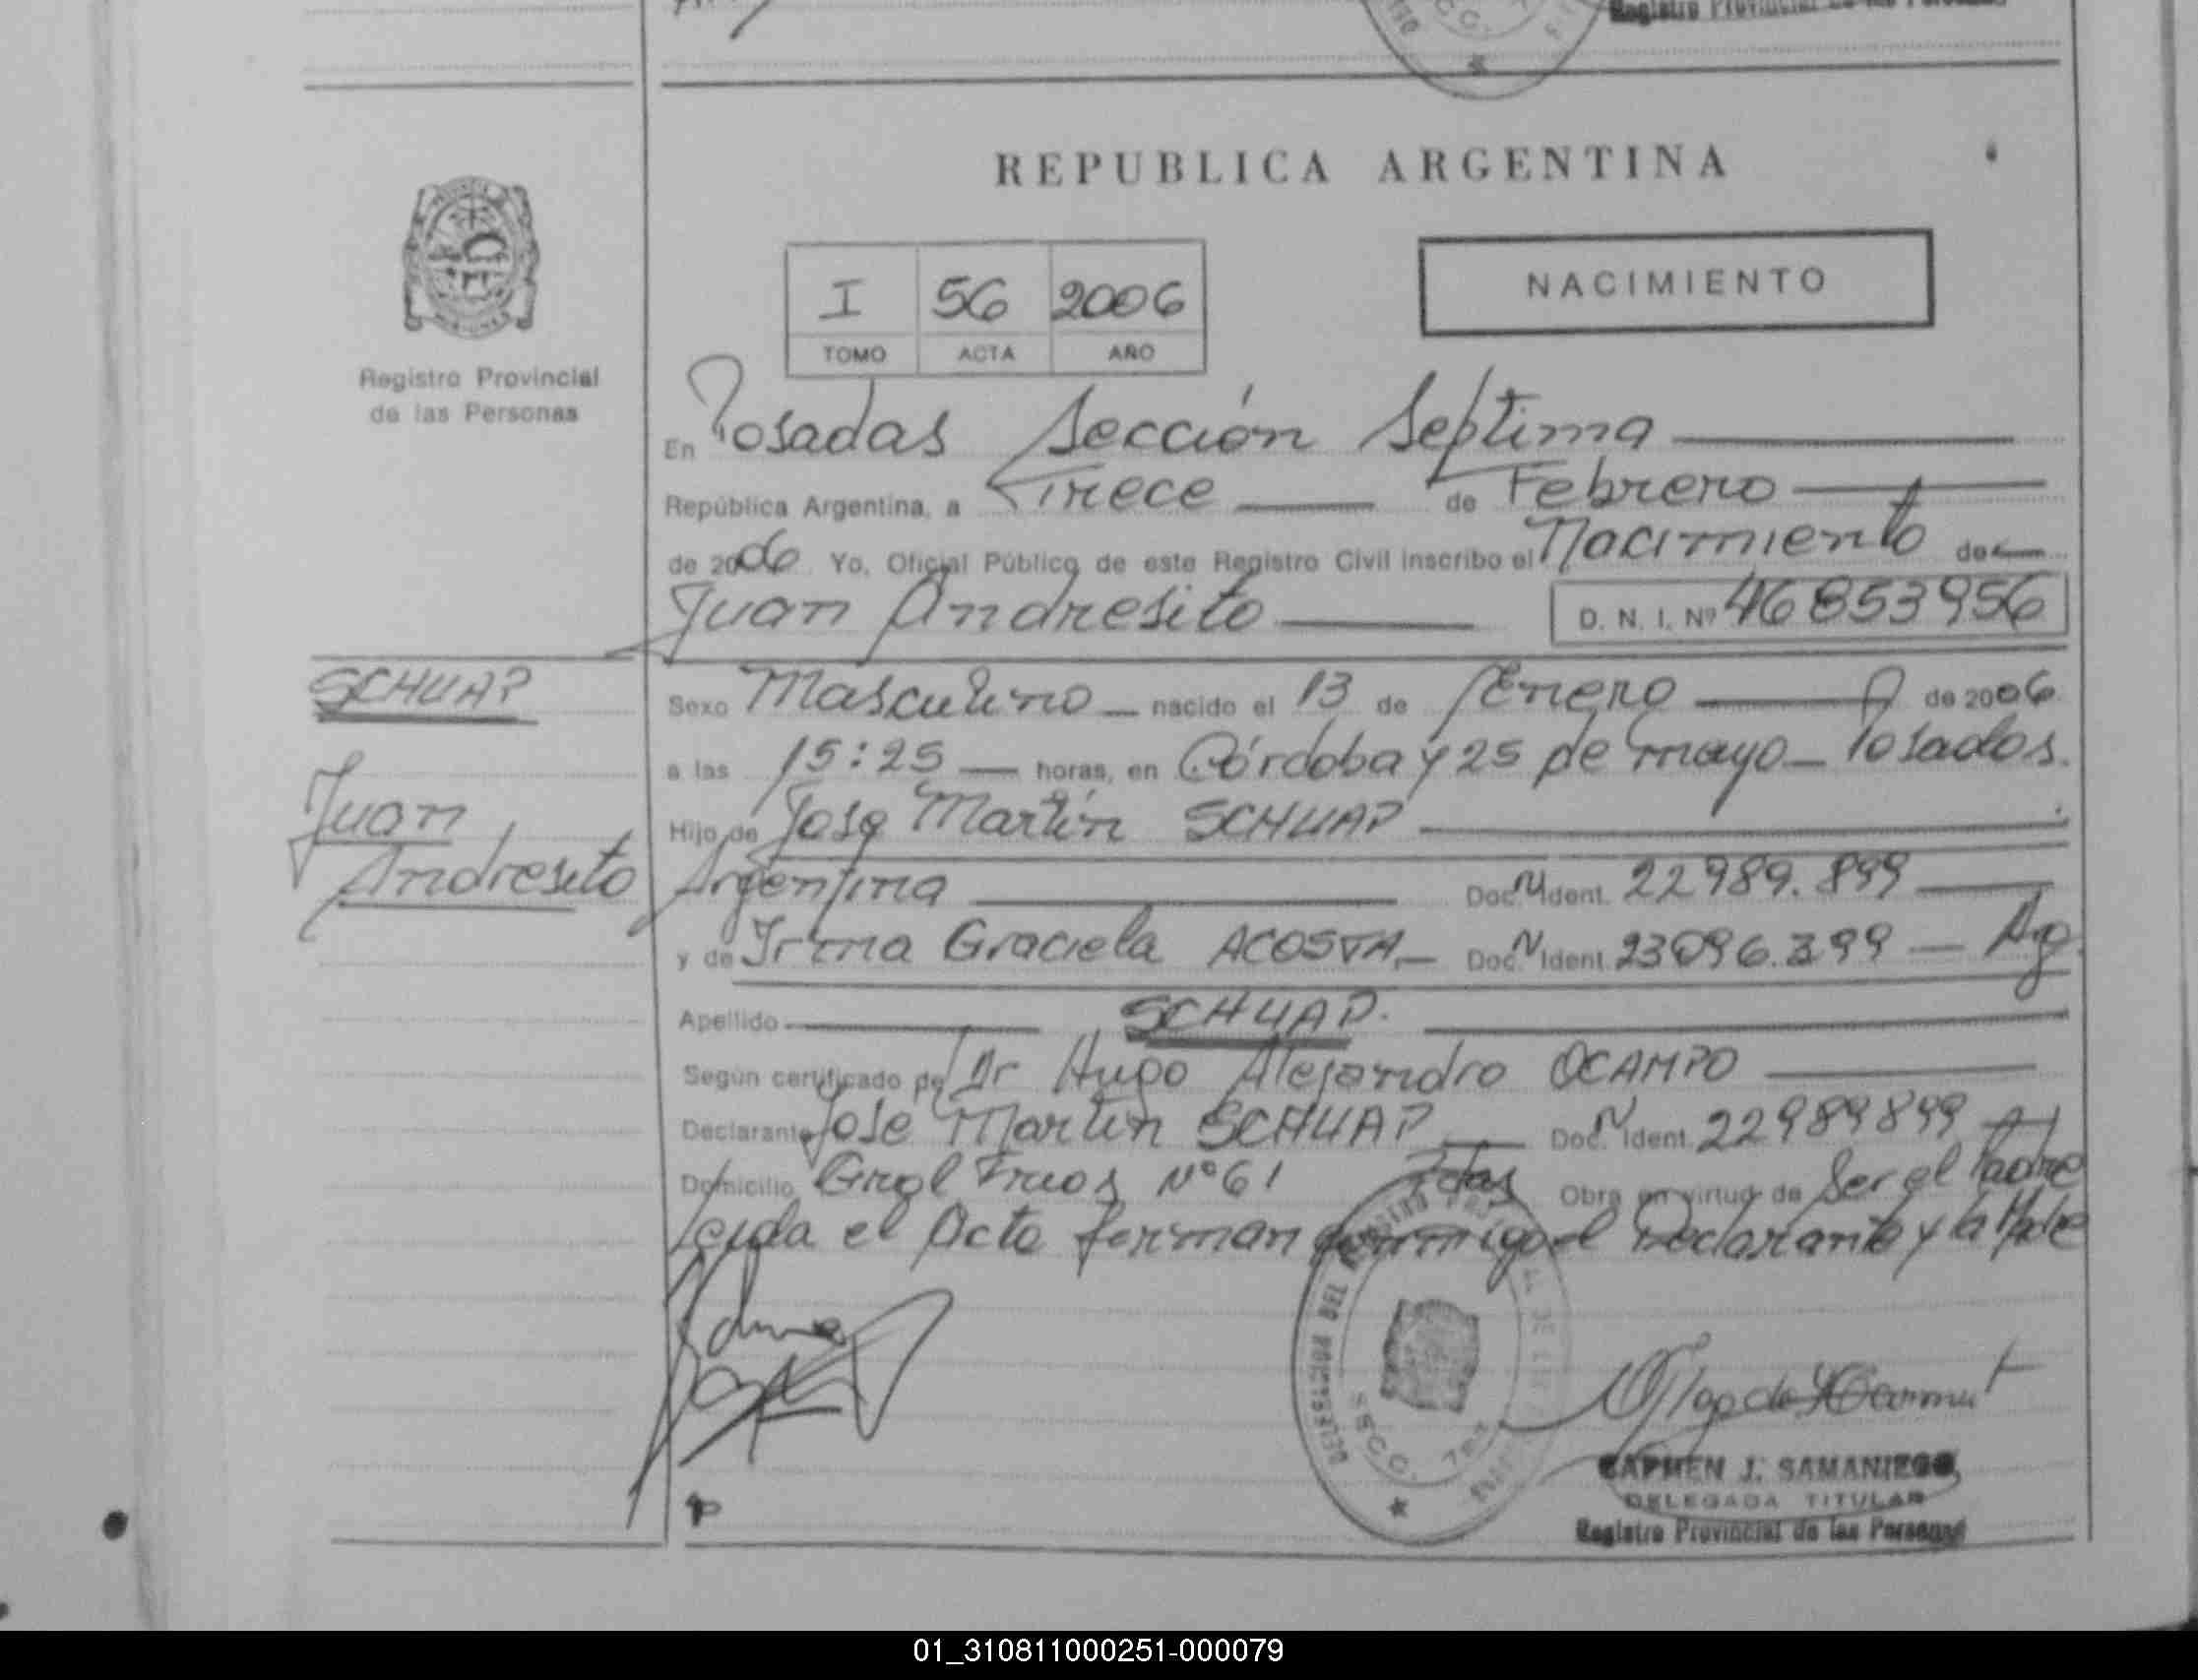 Registro Provincial de las Personas
REPUBLICA ARGENTINA
NACIMIENTO
I 56 2006
TOMO ACTA AÑO
Registro Provincial
de las Personas
En Posadas Sección Septima
República Argentina, a Trece de Febrero
de 2006 Yo, Oficial Público de este Registro Civil inscribo el Nacimiento de
Juan Andresito D. N. I. Nº 46853956
SCHUAP
Juan
Andresito
Sexo Masculino nacido el 13 de Enero de 2006
a las 15:25 horas, en Córdoba y 25 de mayo Posadas.
Hijo de Jose Martín SCHUAP
Argentina Doc. N Ident. 22989.899
y de Irma Graciela ACOSTA Doc. N Ident. 23096.399 Ag
Apellido SCHUAP.
Según certificado de Dr Hugo Alejandro OCAMPO
Declarante Jose Martin SCHUAP Doc. N Ident. 22989899 A
Domicilio Gral Frios Nº 61 Pdas Obra en virtud de Ser el Padre
Leida el Acta firman conmigo el Declarante y la Madre
SECC. 7ma
CARMEN J. SAMANIEGO
DELEGADA TITULAR
Registro Provincial de las Personas
01_310811000251-000079